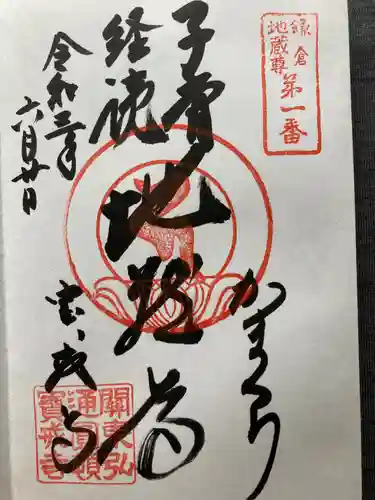 鎌倉
地蔵尊
第一番
子育
経読
地蔵尊
かまくら
令和三年
六月廿日
宝戒寺
關東弘
通圓頓
寶戒寺